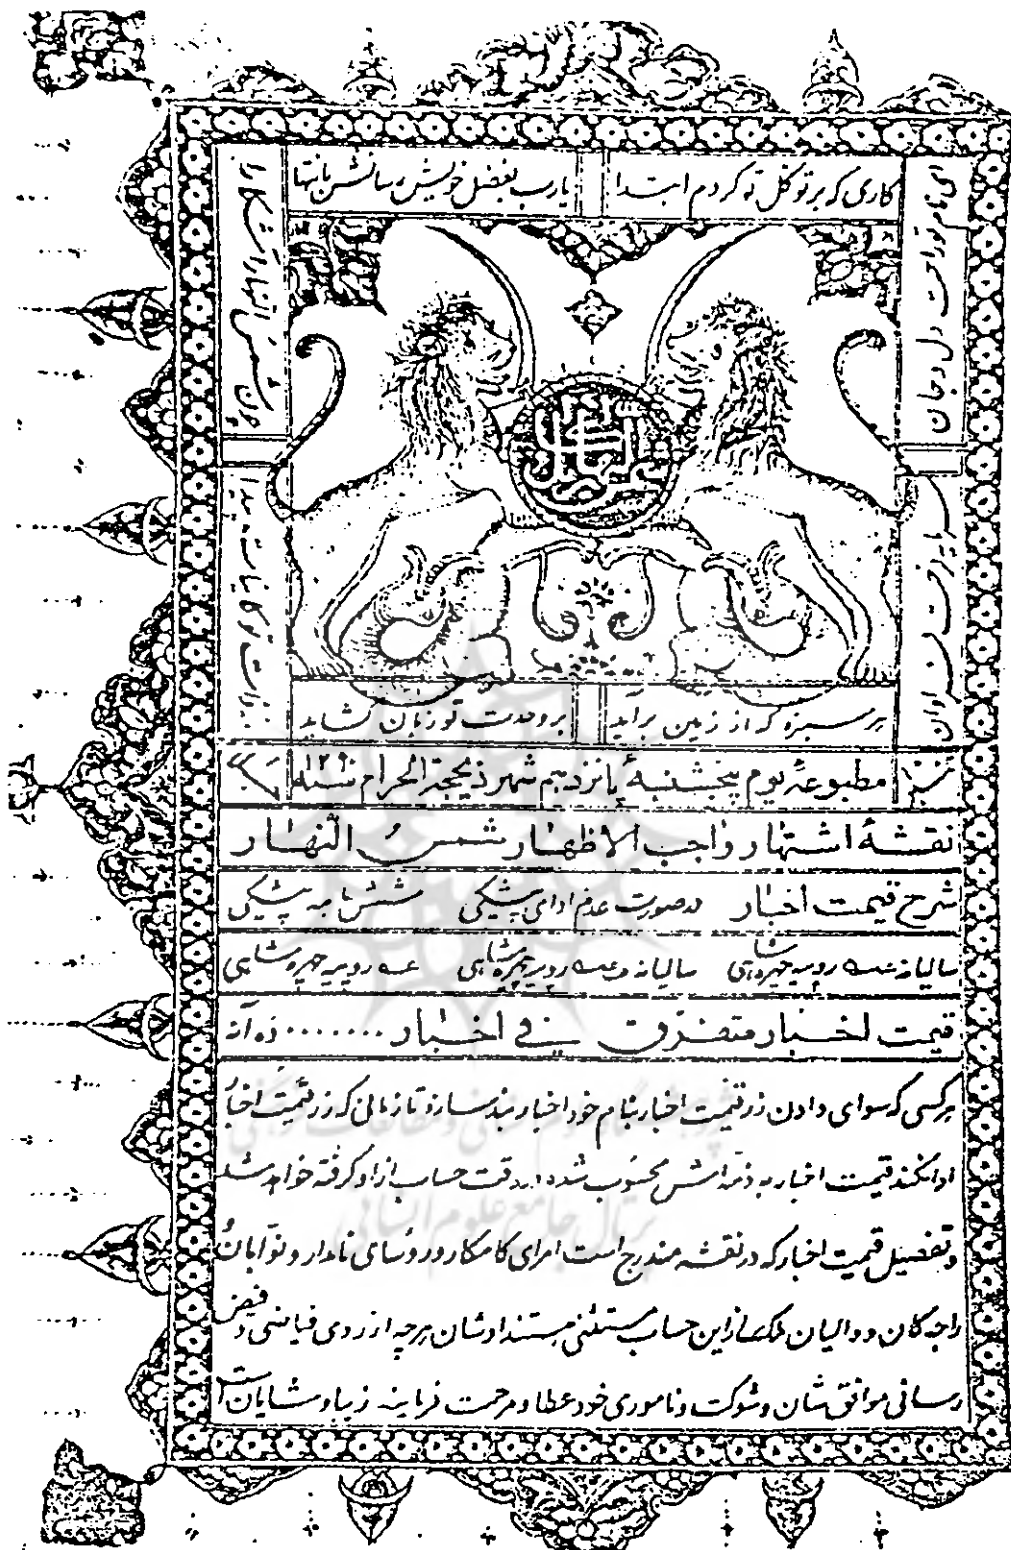 کاری که بر توکل تو کردم ابتدا
یارب بفضل خویش رسانش بانتها
ای نام تو راحت دل و جان
سرمایه فرحت فراوان
چون شمس النهار
شمس النهار
هر سبزه که از زمین برآید
بر وحدت تو زبان گشاید
مطبوعهٔ یوم پنجشنبهٔ پانزدهم شهر ذیحجة الحرام سنه ۱۲۹۰
نقشهٔ اشتهار واجب الاظهار شمس النهار
شرح قیمت اخبار در صورت عدم ادای پیشکی ششماهه پیشکی
سالیانه روپیه چهره شاهی سالیانه روپیه چهره شاهی روپیه چهره شاهی
قیمت اخبار متفرق فی اخبار ........ ده آنه
هر کسی که سوای دادن زر قیمت اخبار بنام خود اخبار بند سازد تا زمانی که زر قیمت اخبار
ادا نکند قیمت اخبار به ذمه اش محسوب شده در وقت حساب از او گرفته خواهد شد
و تفصیل قیمت اخبار که در نقشه مندرج است امرای کامکار و روسای نامدار و نوابان
راجه کان و والیان ملک ازین حساب مستثنی هستند اوشان هر چه از روی فیاضی و فیض
رسانی موافق شان و شوکت و ناموری خود عطا و مرحمت فرمایند زیبا و شایان است
پژوهشگاه علوم انسانی و مطالعات فرهنگی
پرتال جامع علوم انسانی